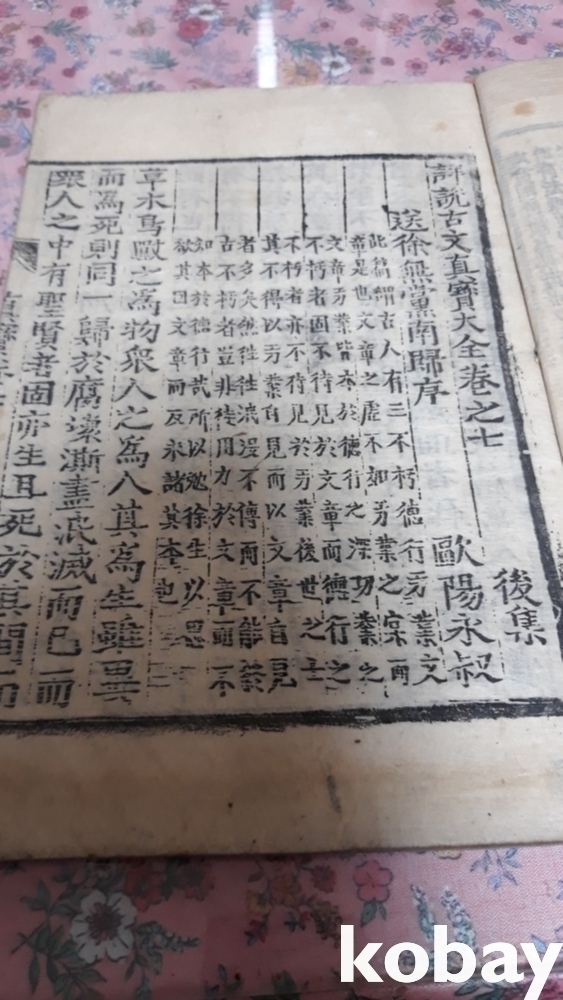 詳說古文眞寶大全卷之七
後集
送徐無黨南歸序
歐陽永叔
此篇謂古人有三不朽德行功業文
章是也文章之虛不如功業之實而
文章功業皆本於德行之深功業之
不朽者固不待見於文章而德行之
不朽者亦不待見於功業後世之士
其不得以功業自見而以文章自見
者多矣然往往泯漫不傳而不能禁
古不朽者豈非徒用力於文章而不
知本於德行哉所以勉徐生以思
欲其因文章而反求諸其本也
草木鳥獸之爲物衆人之爲人其爲生雖異
而爲死則同一歸於腐壞澌盡泯滅而已而
衆人之中有聖賢者固亦生且死於其間而
kobay